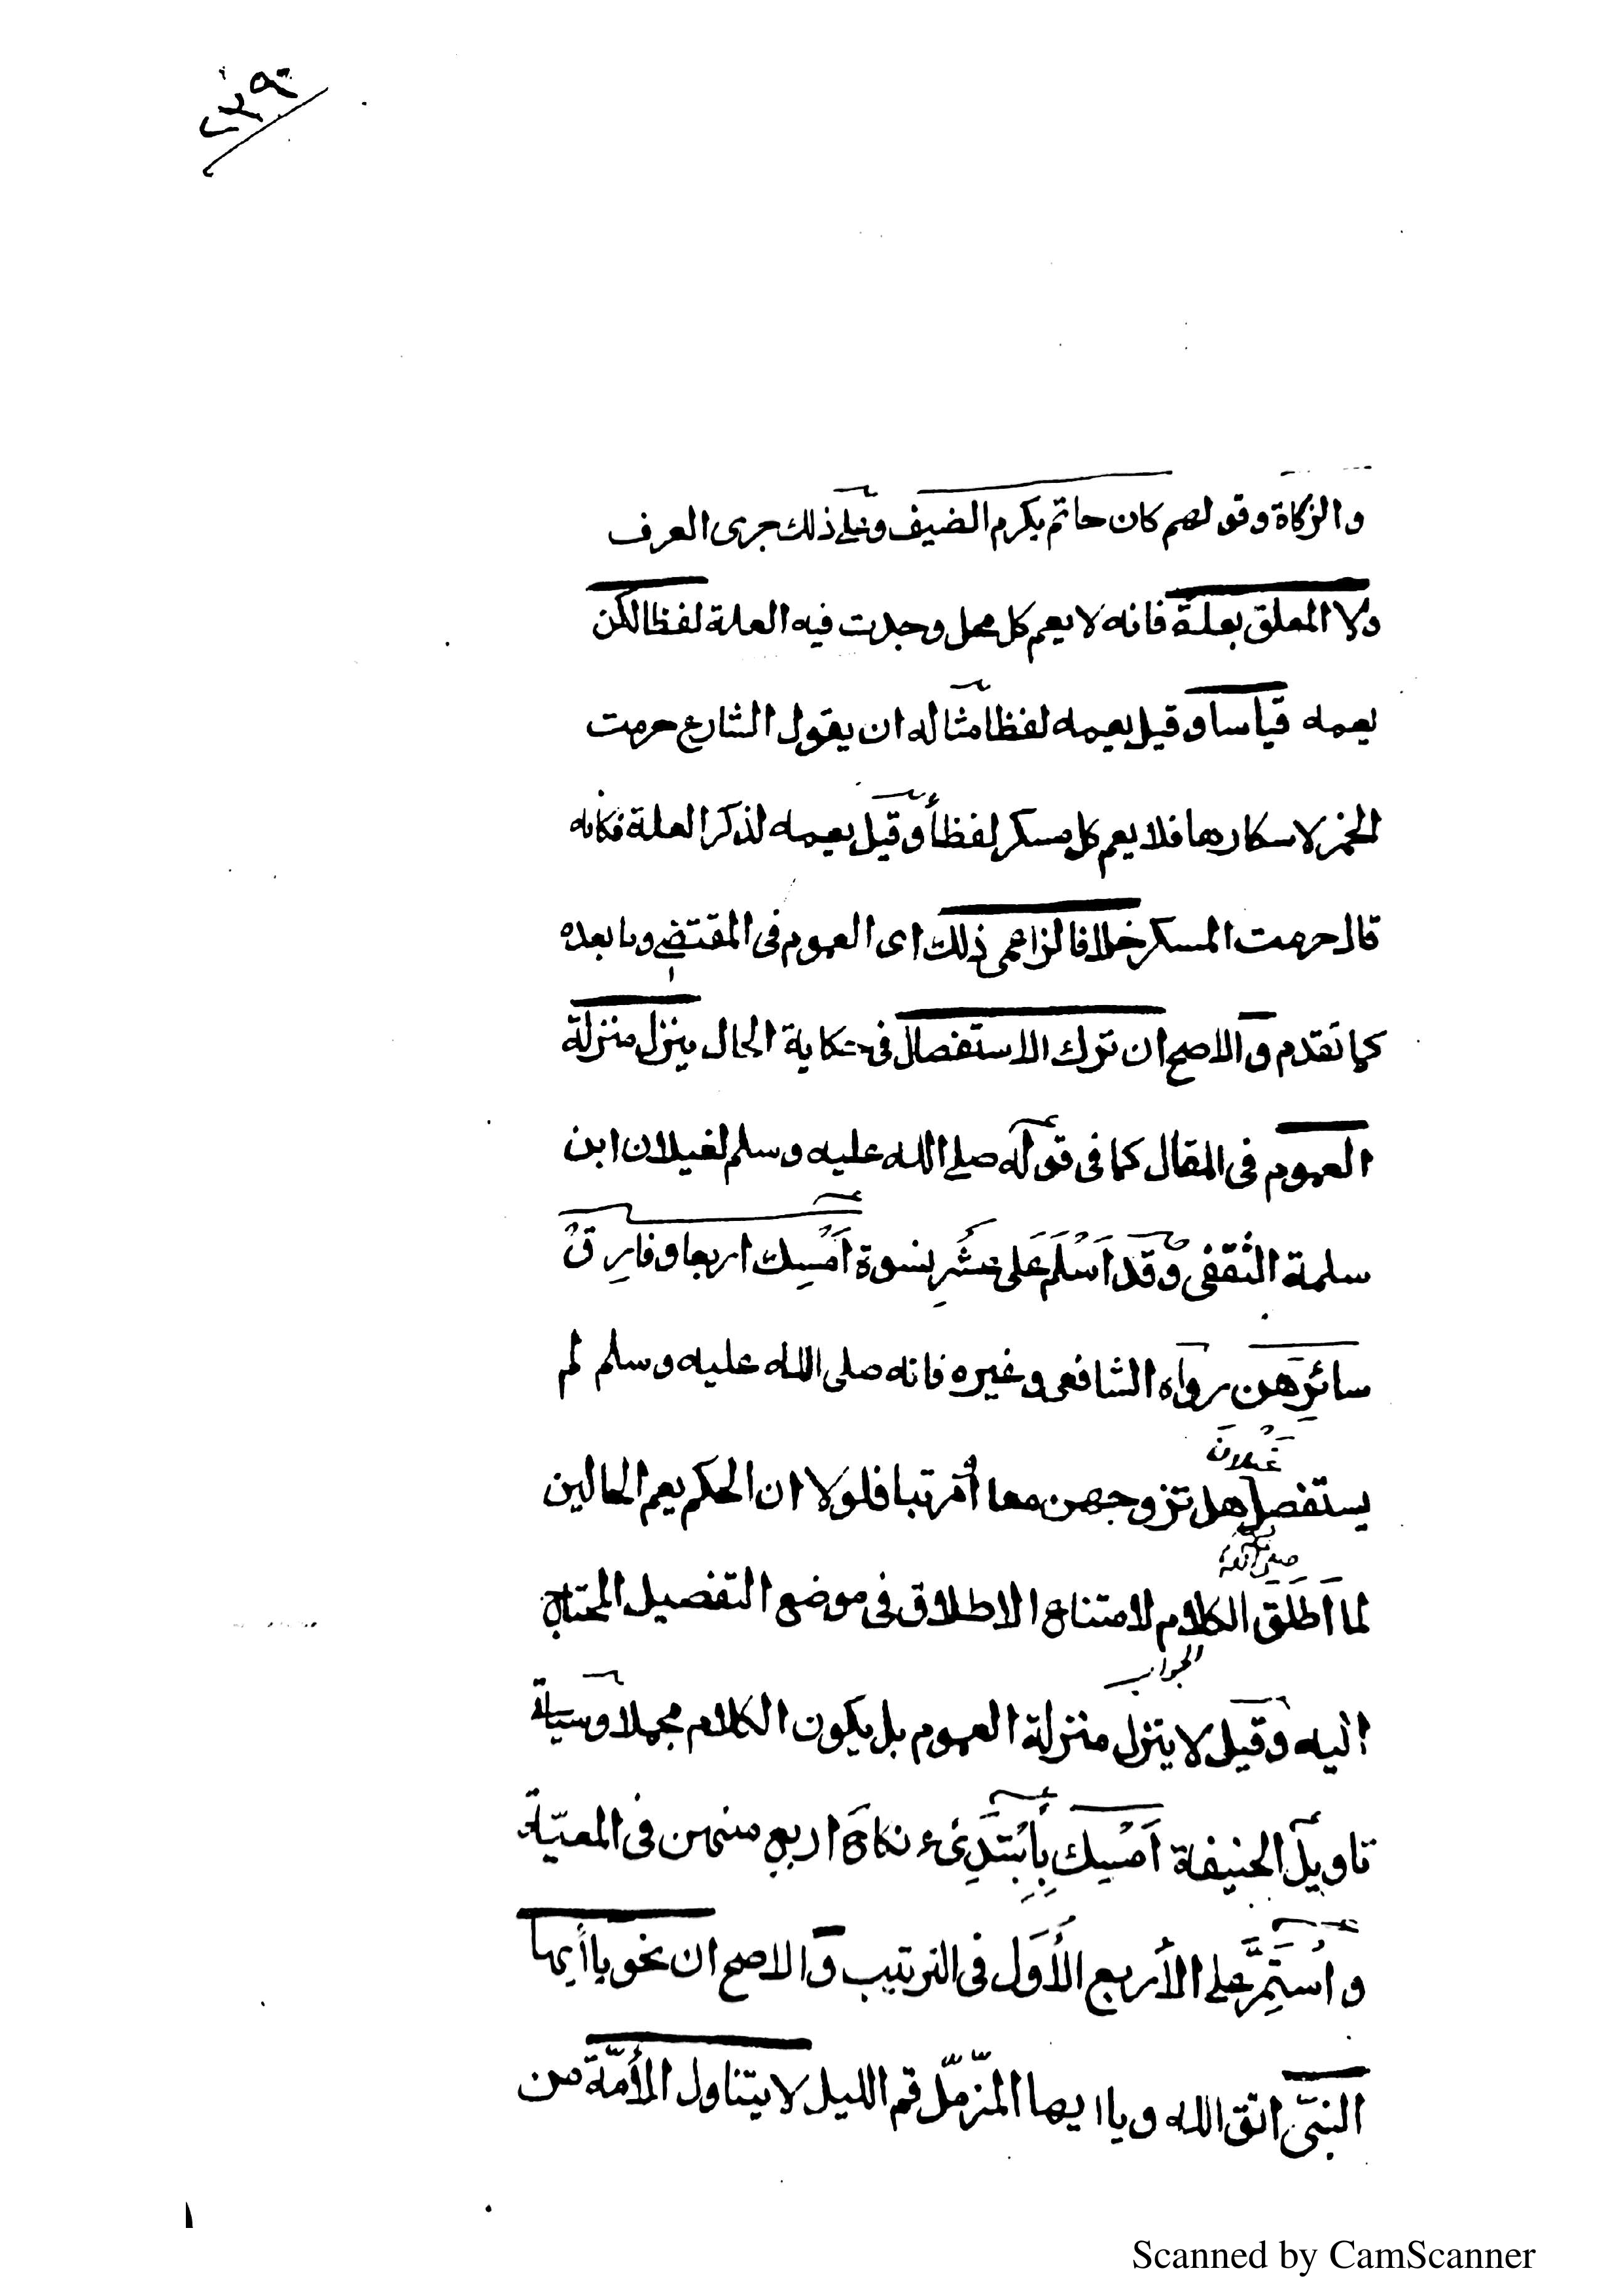 ٢٣٩
والزكاة وقولهم كان حاتم يكرم الضيف وعلى ذلك جرى العرف
ولا المعلق بعلة فانه لا يعم كل محل وجدت فيه العلة لفظا لكن
يعمه قياسا وقيل يعمه لفظا مثاله ان يقول الشارع حرمت
الخمر لاسكارها فلا يعم كل مسكر لفظاً وقيل يعمه لذكر العلة فكانه
قال حرمت المسكر خلافا لزاعمى ذلك اى العموم فى المقتضى وما بعده
كما تقدم والاصح ان ترك الاستفصال فى حكاية الحال ينزل منزلة
العموم فى المقال كما فى قوله صلى الله عليه وسلم لغيلان ابن
سلمة الثقفى وقد اَسْلَمَ عَلى عَشْرِ نسوة اَمْسِك اربعا وفارِقْ
سائرَهن رواه الشافعى وغيره فانه صلى الله عليه وسلم لم
غَيْلانَ
يستفصل هل تزوجهن معا أم مرتبا فلولا ان الحكم يعم الحالين
صلى الله
لما اَطلَقَ الكلام لامتناع الاطلاق فى موضع التفصيل المحتاج
الجواب
اليه وقيل لا ينزل منزلة العموم بل يكون الكلام مجملا وسيأتى
تاويل الحنيفة اَمْسِك بِاِبْتَدِىء نكاحَ اربع منهن فى المعيّة
واُسْتَمِرَّ على الأربع الأُوَل فى الترتيب والاصح ان نحو يا أيها
النبىّ اتق الله ويا ايها المزّمّل قم الليل لا يتناول الأُمّة من
Scanned by CamScanner